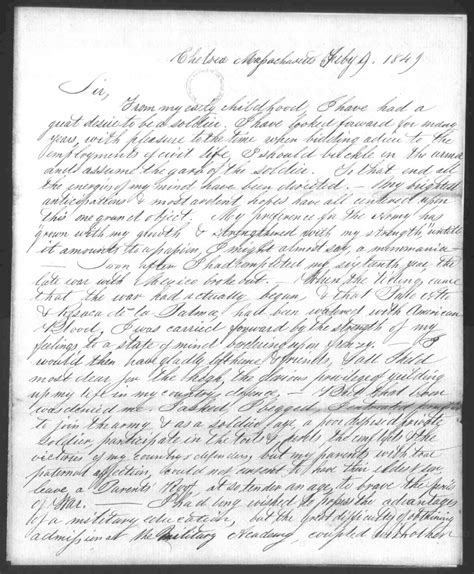 Chelsea Massachusetts July 9. 1849
Sir,
From my early childhood, I have had a
great desire to be a soldier. I have looked forward for many
years, with pleasure to the time when bidding adieu to the
employments of civil life, I should buckle on the armor
and assume the garb of the soldier. To that end, all
the energies of my mind have been directed. — My brightest
anticipations & most ardent hopes have all centered upon
this one grand object. My preference for the Army has
grown with my growth & strengthened with my strength "untill
it amounts to a passion, I might almost say, a monomania.
— Soon after I had completed my sixteenth year, the
late war with Mexico broke out — When the tidings came
that the war had actually begun, & that Palo Alto
& Resaca de la Palma, had been watered with American
Blood, I was carried forward by the strength of my
feelings to a state of mind bordering upon frenzy. — I
would then have gladly left home & friends, & all I held
most dear for the high, the glorious privilege of yielding
up my life in my country's defence, — But that boon
was denied me I asked, I begged,
to join the army & as a soldier, aye, a poor despised private
soldier, participate in the toils & perils the conflicts & the
victories of my country's defenders, but my parents with true
paternal affection, would not consent to have their eldest son
leave a Parents Roof, at so tender an age, to brave the perils
of War. — I had long wished to possess the advantages
of a military education, but the great difficulty of obtaining
admission at the Military Academy coupled with other